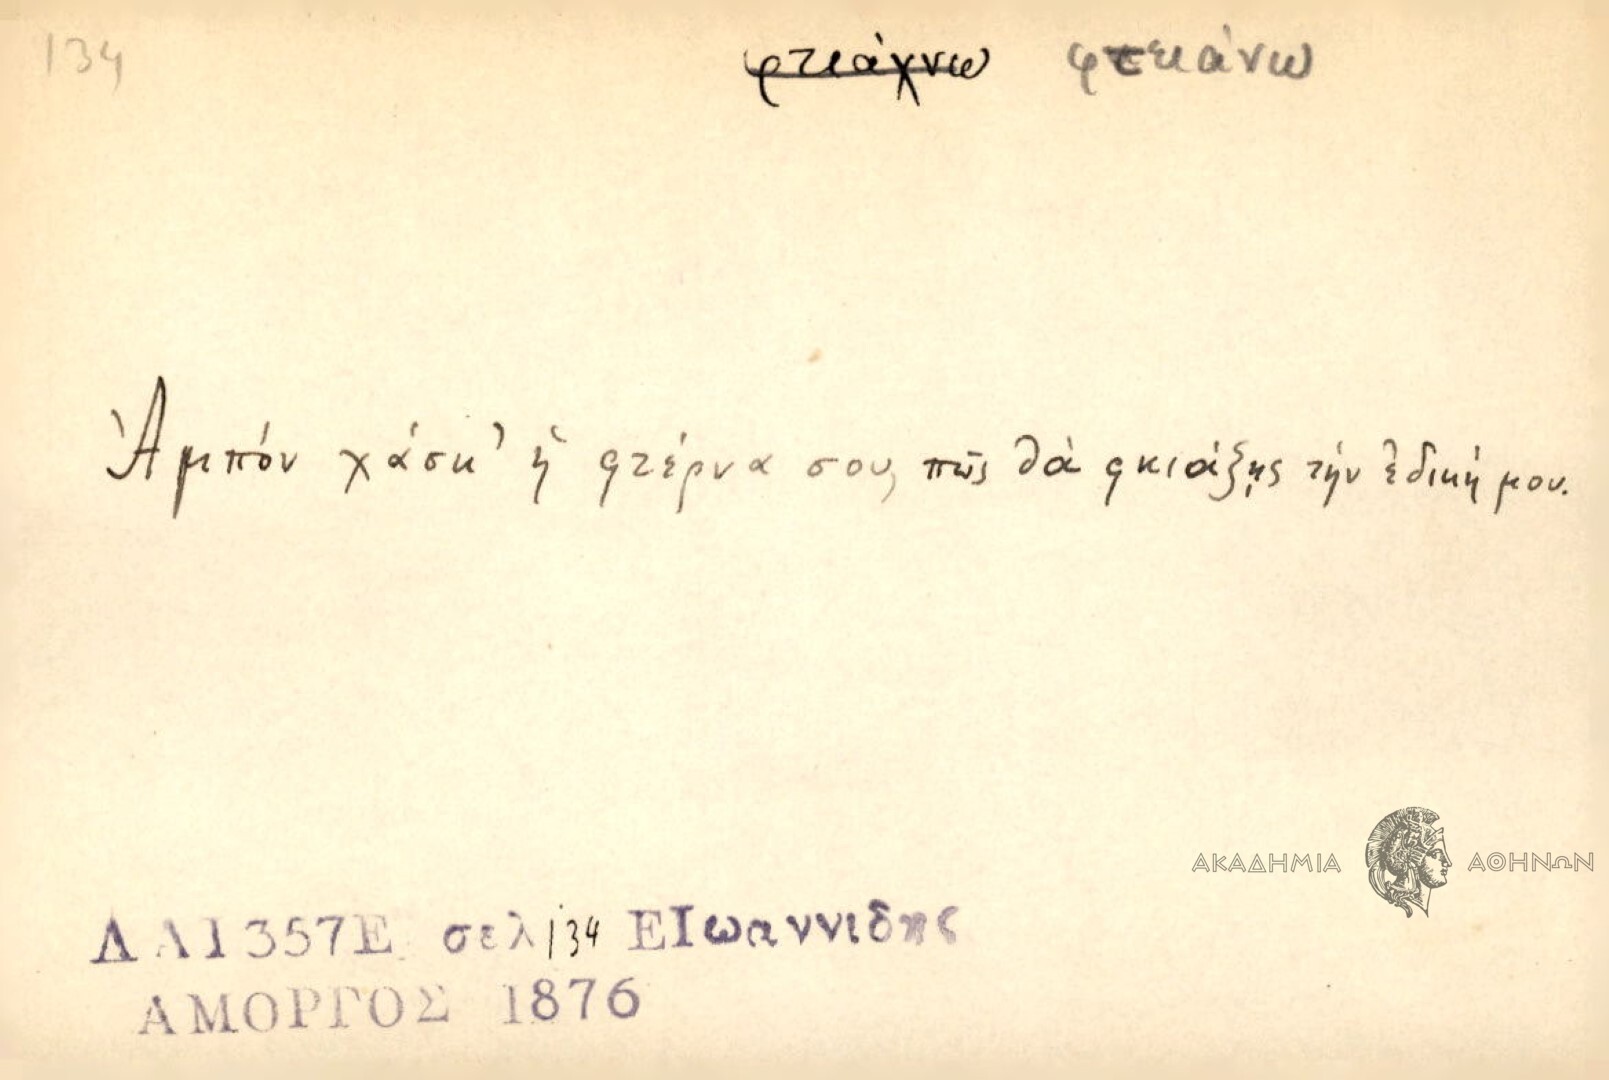 134
φτιάχνω φτειάνω
Ἀμπόν χάσκ' ἡ φτέρνα σου, πῶς θὰ φκιάξῃς τὴν ἐδική μου.
ΑΚΑΔΗΜΙΑ ΑΘΗΝΩΝ
ΛΑ1357Ε σελ 134 ΕΙωαννιδης
ΑΜΟΡΓΟΣ 1876